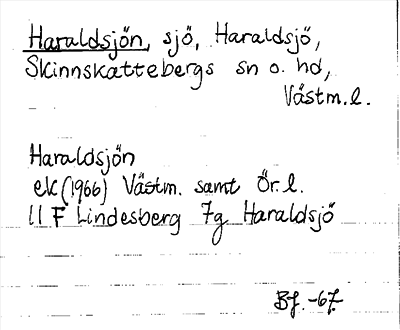 Haraldsjön, sjö, Haraldsjö,
Skinnskattebergs sn o. hd,
Västm. l.
Haraldsjön
ek (1966) Västm. samt Ör. l.
11 F Lindesberg 7g Haraldsjö
Bf. -67.